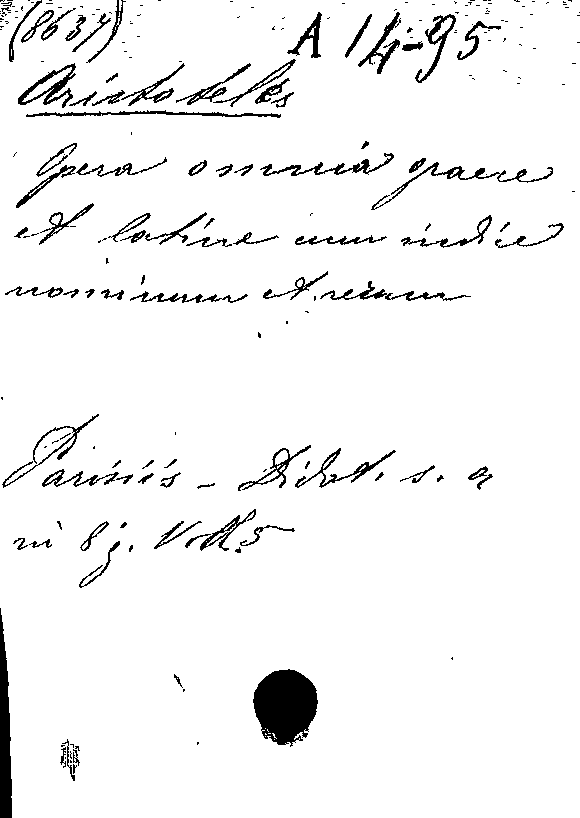 (8637) A 14-95
Aristoteles
Opera omnia graece
et latine cum indice
nominum et rerum
Parisiis - Didot. s. a
in 8 g. Voll. 5